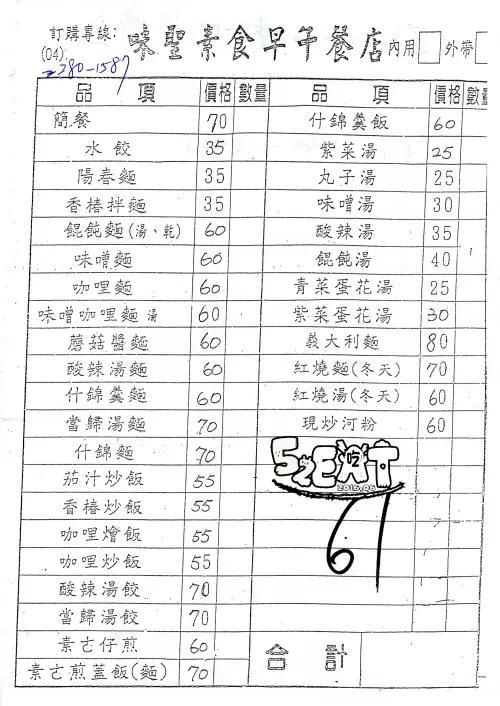 訂購專線：
(04)
2380-1587
味聖素食早午餐店 內用 外帶
品 項 價格 數量 品 項 價格 數量
簡餐 70 什錦羹飯 60
水餃 35 紫菜湯 25
陽春麵 35 丸子湯 25
香椿拌麵 35 味噌湯 30
餛飩麵(湯、乾) 60 酸辣湯 35
味噌麵 60 餛飩湯 40
咖哩麵 60 青菜蛋花湯 25
味噌咖哩麵 湯 60 紫菜蛋花湯 30
蘑菇醬麵 60 義大利麵 80
酸辣湯麵 60 紅燒麵(冬天) 70
什錦羹麵 60 紅燒湯(冬天) 60
當歸湯麵 70 現炒河粉 60
什錦麵 70
茄汁炒飯 55
香椿炒飯 55
咖哩燴飯 55
咖哩炒飯 55
酸辣湯餃 70
當歸湯餃 70
素古仔煎 60
素古煎蓋飯(麵) 70
合 計
52吃EAT
2016.06
61